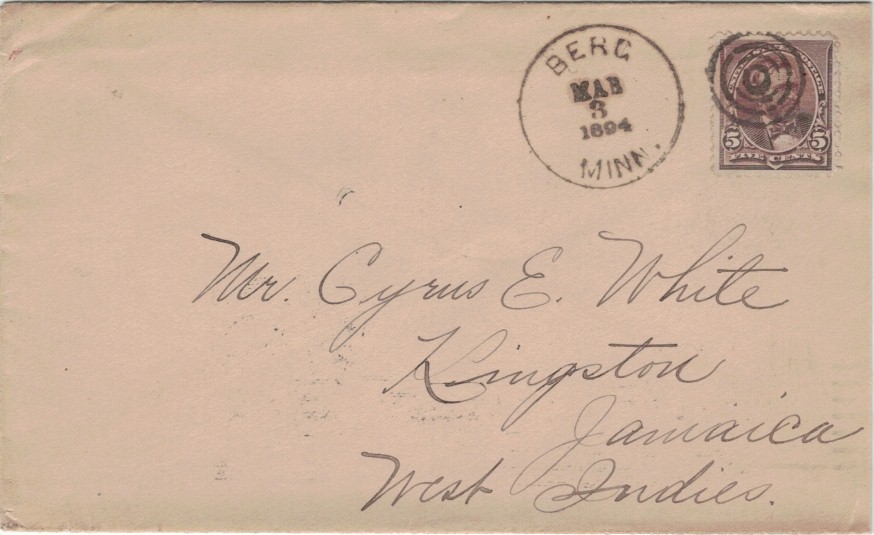 BERG
MAR
3
1894
MINN.
5 5
Mr. Cyrus E. White
Kingston
Jamaica
West Indies.